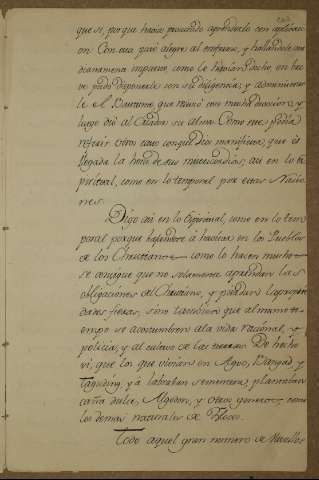 que si, porque havia procurado aprenderlo con aplicaci
on. Con eso pasó alegre al enfermo, y hallandole con
instruido como le havian dicho, en bre
ve pudo disponerle con su diligencia, y administrar
le el Bautismo que recivió con mucha devocion, y
luego dió al Criador su alma. Como este podia
referir otros casos con que Dios manifiesta, que es
llegada la hora de sus misericordias, asi en lo es
piritual, como en lo temporal para estas Nacio
nes.
Digo asi en lo Espiritual, como en lo tem
poral porque haciendose à havitar en los Pueblos
de los Christianos como lo hacen muchos
se consigue que no solamente aprendan las
obligaciones del Christiano, y pierdan la
dades fieras, sino tambien que al mismo ti
empo se acostumbren a la vida racional, y
policia, y al cultivo de las tierras. De hecho
vi, que los que vivian en Agoo, Bangad, y
Tagudin, yá labraban sementeras, plantaban
caña dulce, Algodon, y otros generos, como
los demas naturales de Ylocos.
Todo aquel gran numero de